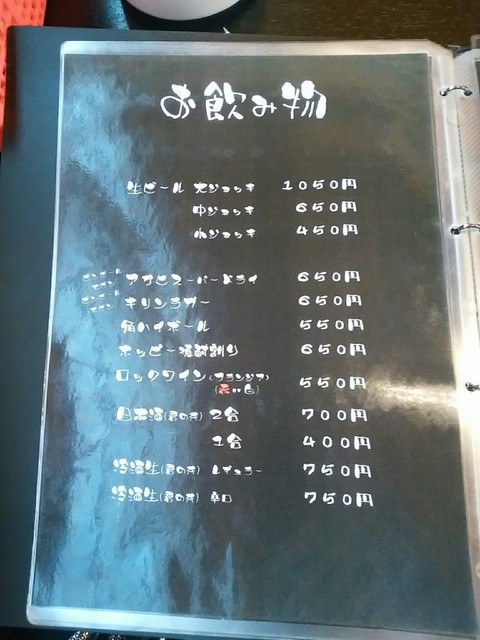 お飲み物
生ビール 大ジョッキ 1050円
中ジョッキ 650円
小ジョッキ 450円
アサヒスーパードライ 650円
キリンラガー 650円
角ハイボール 550円
ホッピー焼酎割り 650円
ロックワイン(フランジア) 550円
(赤or白)
日本酒(君の井) 2合 700円
1合 400円
冷酒生(君の井) レギュラー 750円
冷酒生(君の井) 辛口 750円